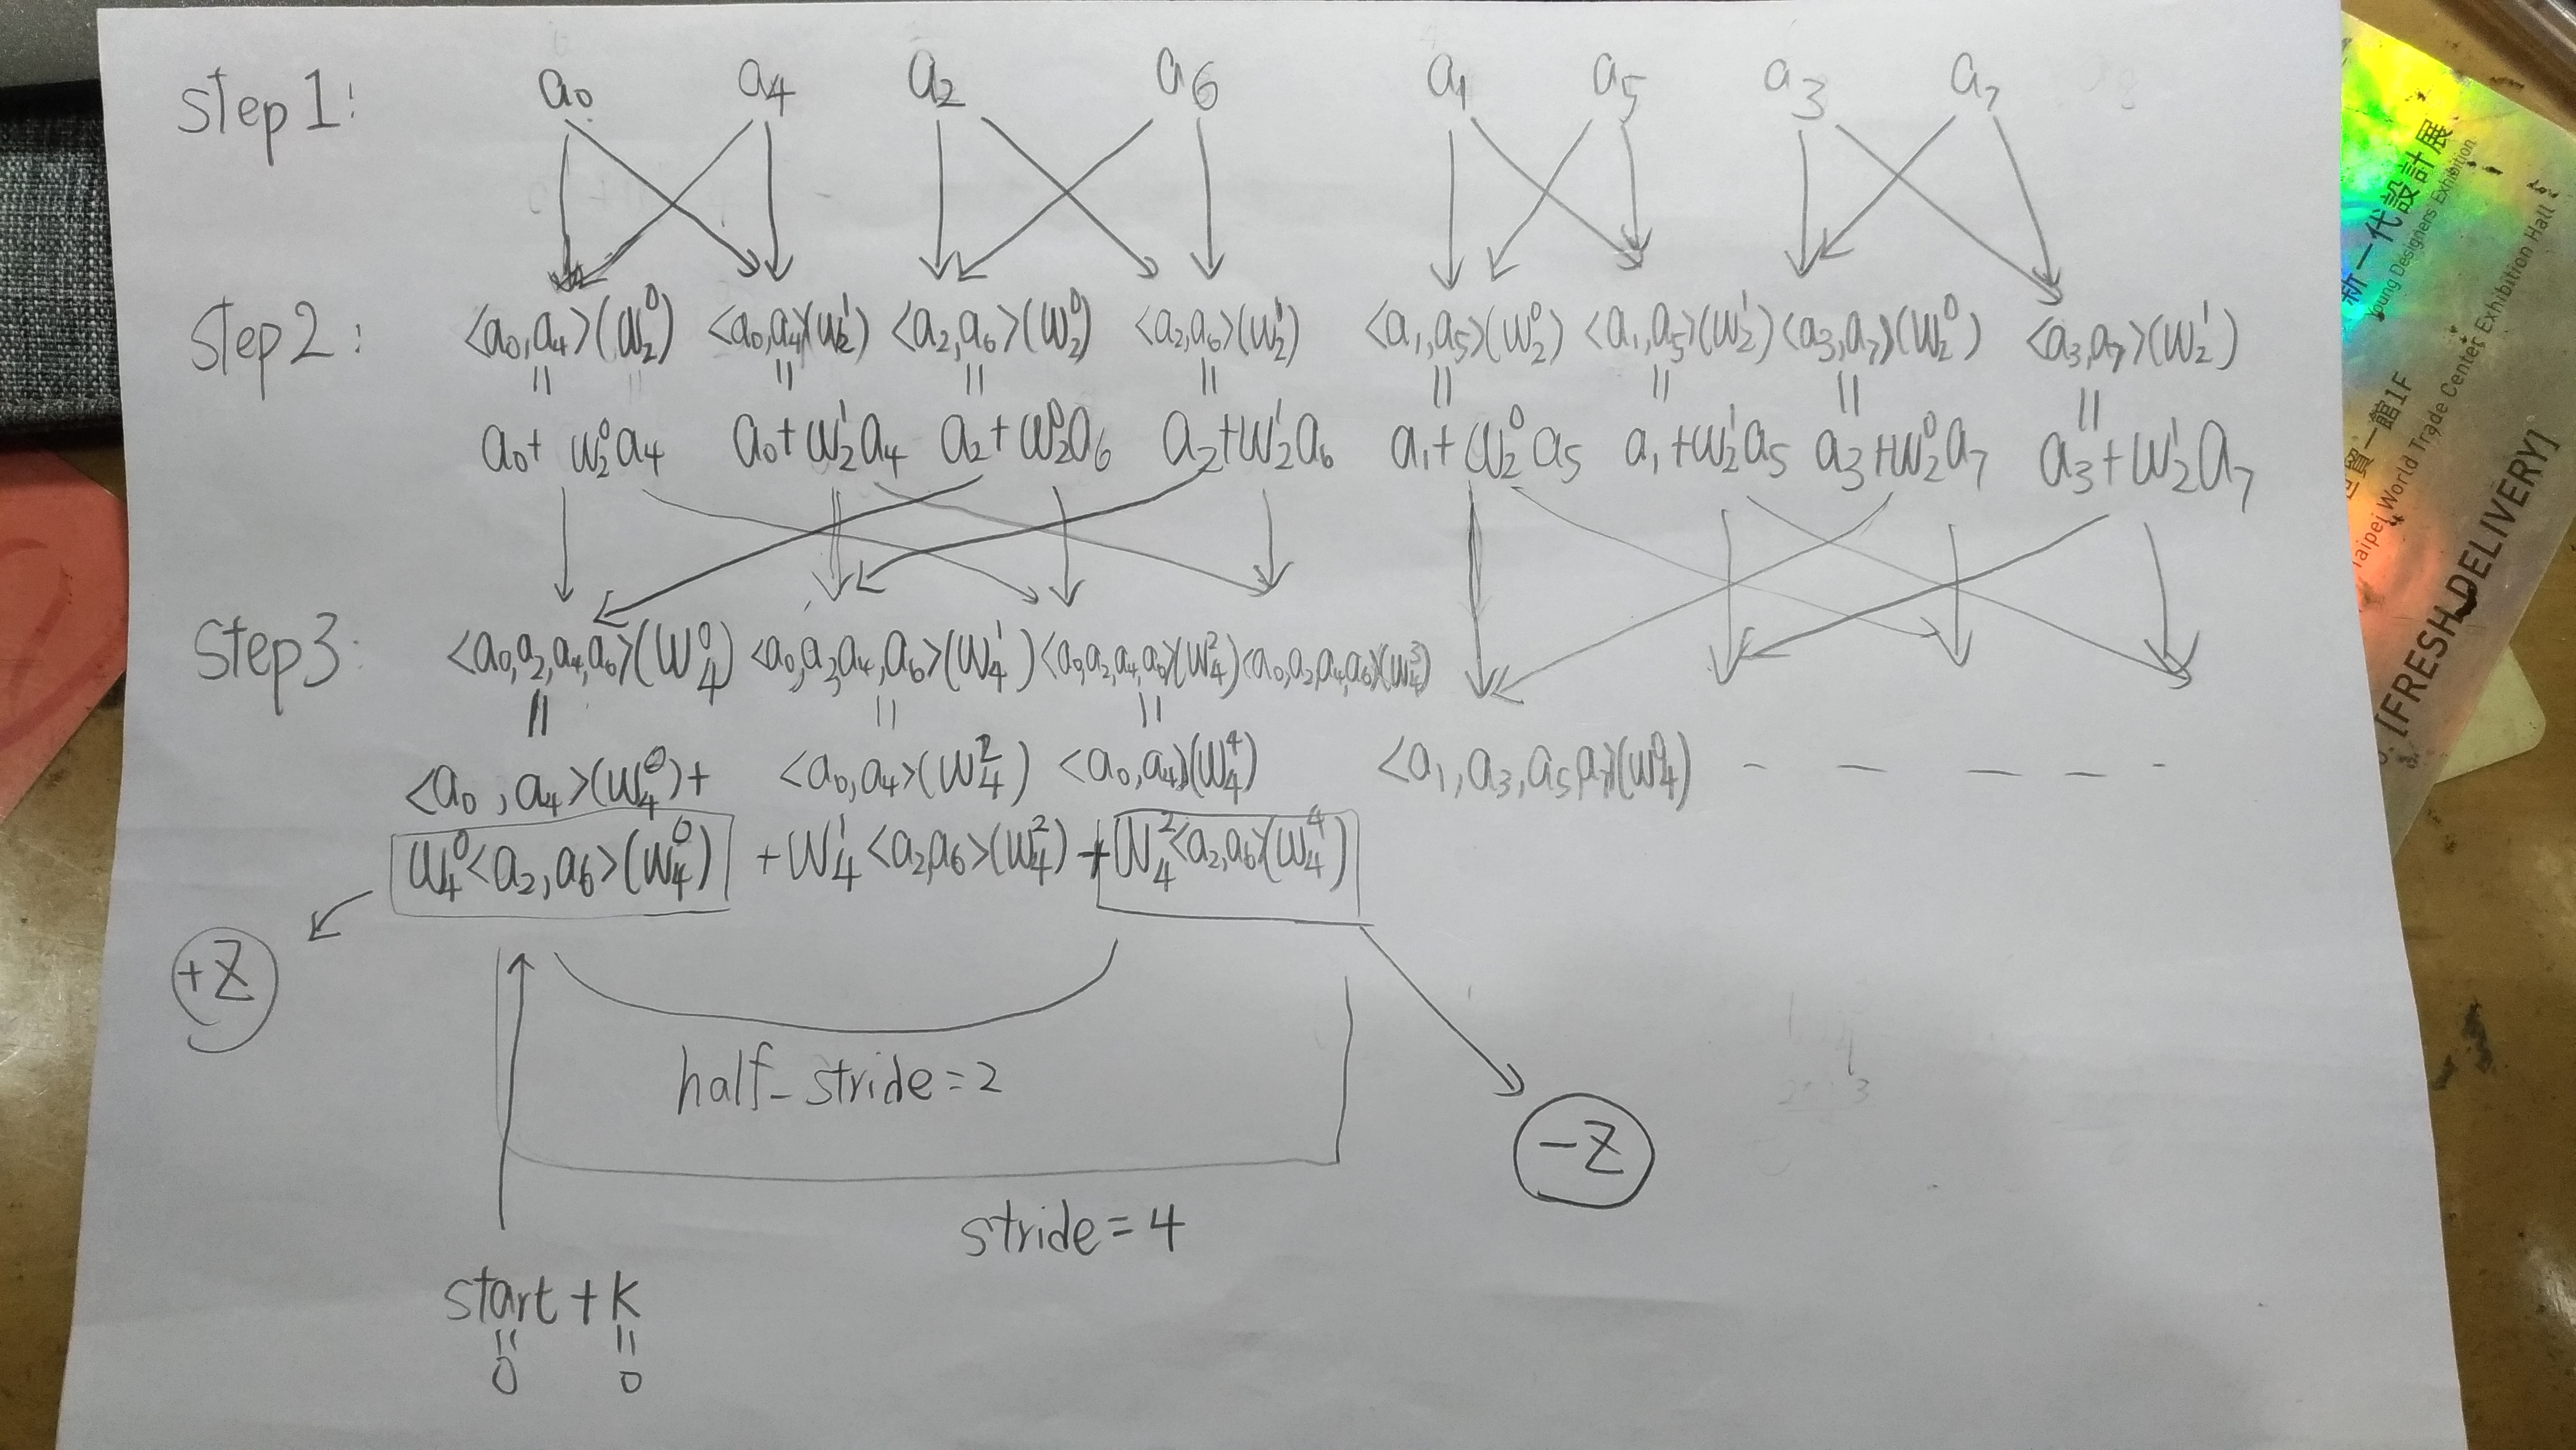 step 1: a₀ a₄ a₂ a₆ a₁ a₅ a₃ a₇
step 2: <a₀,a₄>(W₂⁰) <a₀,a₄>(W₂¹) <a₂,a₆>(W₂⁰) <a₂,a₆>(W₂¹) <a₁,a₅>(W₂⁰) <a₁,a₅>(W₂¹) <a₃,a₇>(W₂⁰) <a₃,a₇>(W₂¹)
= = = = = = = =
a₀+W₂⁰a₄ a₀+W₂¹a₄ a₂+W₂⁰a₆ a₂+W₂¹a₆ a₁+W₂⁰a₅ a₁+W₂¹a₅ a₃+W₂⁰a₇ a₃+W₂¹a₇
step 3: <a₀,a₂,a₄,a₆>(W₄⁰) <a₀,a₂,a₄,a₆>(W₄¹) <a₀,a₂,a₄,a₆>(W₄²) <a₀,a₂,a₄,a₆>(W₄³)
= = =
<a₀,a₄>(W₄⁰)+ <a₀,a₄>(W₄²) <a₀,a₄>(W₄⁴) <a₁,a₃,a₅,a₇>(W₄⁰) - - - - -
W₄⁰<a₂,a₆>(W₄⁰) +W₄¹<a₂,a₆>(W₄²) +W₄²<a₂,a₆>(W₄⁴)
+Z
half_stride=2
-Z
stride=4
start+k
= =
0 0
新一代設計展
Young Designers' Exhibition
世貿一館1F
Taipei World Trade Center Exhibition Hall
[FRESH DELIVERY]